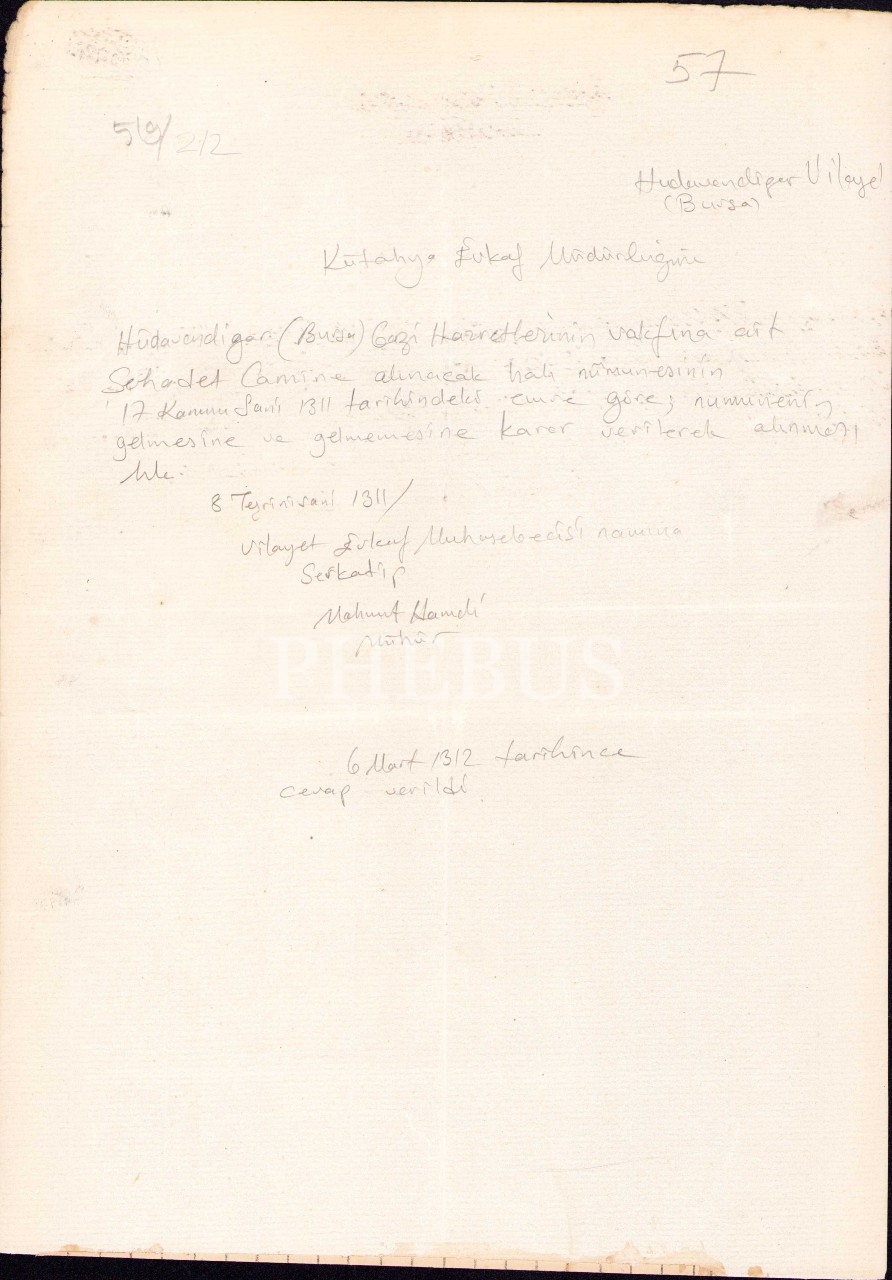 57
519/212
Hudavendigar Vilayeti
(Bursa)
Kütahya Evkaf Müdürlüğüne
Hüdavendigar (Bursa) Gazi Hazretlerinin vakfına ait
Şehadet Camine alınacak halı nümunesinin
17 Kanunu Sani 1311 tarihindeki emre göre; numunenin
gelmesine ve gelmemesine karar verilerek alınması
8 Teşrinisani 1311/
Vilayet Evkaf Muhasebecisi namına
Serkatip
Mahmut Hamdi
Mühür
PHEBUS
6 Mart 1312 tarihince
cevap verildi